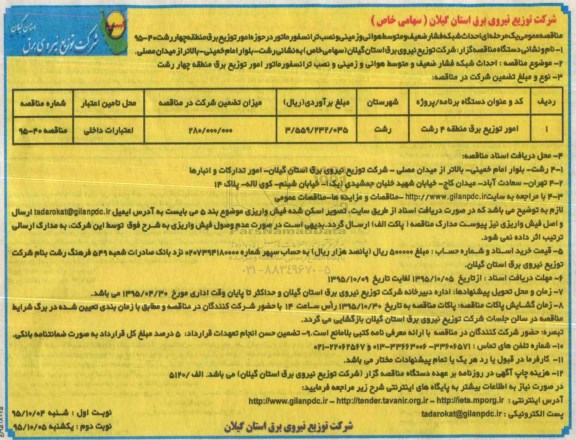 شرکت توزیع نیروی برق استان گیلان ( سهامی خاص )
مناقصه عمومی یک مرحله ای احداث شبکه فشار ضعیف و متوسط هوائی و زمینی و نصب ترانسفورماتور در حوزه امور توزیع برق منطقه چهار رشت ۴۰-۹۵
۱- نام و نشانی دستگاه مناقصه گزار: شرکت توزیع نیروی برق استان گیلان (سهامی خاص) به نشانی رشت- بلوار امام خمینی- بالاتر از میدان مصلی.
۲- موضوع مناقصه : احداث شبکه فشار ضعیف و متوسط هوایی و زمینی و نصب ترانسفورماتور امور توزیع برق منطقه چهار رشت
۳- نوع و مبلغ تضمین شرکت در مناقصه:
ردیف کد و عنوان دستگاه برنامه/پروژه شهرستان مبلغ برآوردی(ریال) میزان تضمین شرکت در مناقصه محل تامین اعتبار شماره مناقصه
۱ امور توزیع برق منطقه ۴ رشت رشت ۳/۵۵۹/۲۳۲/۰۳۵ ۲۸۰/۰۰۰/۰۰۰ اعتبارات داخلی مناقصه ۴۰-۹۵
۴- محل دریافت اسناد مناقصه:
۴-۱ رشت- بلوار امام خمینی- بالاتر از میدان مصلی - شرکت توزیع نیروی برق استان گیلان- امور تدارکات و انبارها
۴-۲ تهران- سعادت آباد- میدان کاج- خیابان شهید خلبان جمشیدی (یک)- خیابان شبنم- کوی لاله- پلاک ۱۴
۴-۳ با مراجعه به سایت http://www.gilanpdc.ir -مناقصات و مزایده ها-مناقصات عمومی
لازم به توضیح می باشد که در صورت دریافت اسناد از طریق سایت، تصویر اسکن شده فیش واریزی موضوع بند ۵ می بایست به آدرس ایمیل tadarokat@gilanpdc.ir ارسال
و اصل فیش واریزی نیز پیوست مدارک مناقصه ( پاکت الف) ارسال گردد.بدیهی است در صورت عدم وصول فیش واریزی به شرح فوق توسط این شرکت، به مدارک ارسالی
ترتیب اثر داده نمی شود.
۵- قیمت خرید اسناد و شماره حساب : مبلغ ۵۰۰۰۰۰ ریال (پانصد هزار ریال) به حساب سپهر شماره ۰۲۰۷۳۹۴۱۸۰۰۰۰ نزد بانک صادرات شعبه ۵۴۹ فرهنگ رشت بنام شرکت
توزیع نیروی برق استان گیلان.
۶- مهلت دریافت اسناد : ازتاریخ ۱۳۹۵/۱۰/۰۵ لغایت تاریخ ۱۳۹۵/۱۰/۰۹
۷- زمان و محل تحویل پیشنهادها: اداره دبیرخانه شرکت توزیع نیروی برق استان گیلان و حداکثر تا پایان وقت اداری مورخ می باشد.
۸- زمان گشایش پاکات مناقصه: پاکات مناقصه به تاریخ ۱۳۹۵/۱۰/۳۰ رأس ساعت ۱۴ با حضور شرکت کنندگان در مناقصه و مطابق با زمان بندی تعیین شده در برگ شرایط
مناقصه در سالن جلسات شرکت توزیع نیروی برق استان گیلان بازگشایی می گردد.
تبصره: حضور شرکت کنندگان در مناقصه با ارائه معرفی نامه کتبی بلامانع است.۹- تضمین حسن انجام تعهدات قرارداد: ۵ درصد مبلغ کل قرارداد به صورت ضمانتنامه بانکی.
۱۰- شماره تلفن های تماس : ۳۳۶۰۶۵۷۱-۳۳۶۶۳۰۰۶-۰۱۳ و ۲۲۰۶۲۵۶۷-۰۲۱
۱۱- کارفرما در قبول یا رد هر یک یا تمام پیشنهادات مختار می باشد.
۱۲- هزینه چاپ آگهی در روزنامه بر عهده دستگاه مناقصه گزار (شرکت توزیع نیروی برق استان گیلان) می باشد. الف /۵۱۲۰
در صورت نیاز به اطلاعات بیشتر به پایگاه های اینترنتی شرح زیر مراجعه فرمایید:
آدرس اینترنتی : http://www.gilanpdc.ir - http://tender.tavanir.org.ir - http://iets.mporg.ir
پست الکترونیکی : tadarokat@gilanpdc.ir
نوبت اول : شنبه ۹۵/۱۰/۰۴
نوبت دوم : یکشنبه ۹۵/۱۰/۰۵
شرکت توزیع نیروی برق استان گیلان